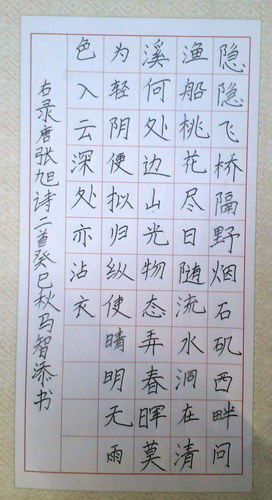 隐隐飞桥隔野烟石矶西畔问
渔船桃花尽日随流水洞在清
溪何处边山光物态弄春晖莫
为轻阴便拟归纵使晴明无雨
色入云深处亦沾衣
右录唐张旭诗二首癸巳秋马智添书